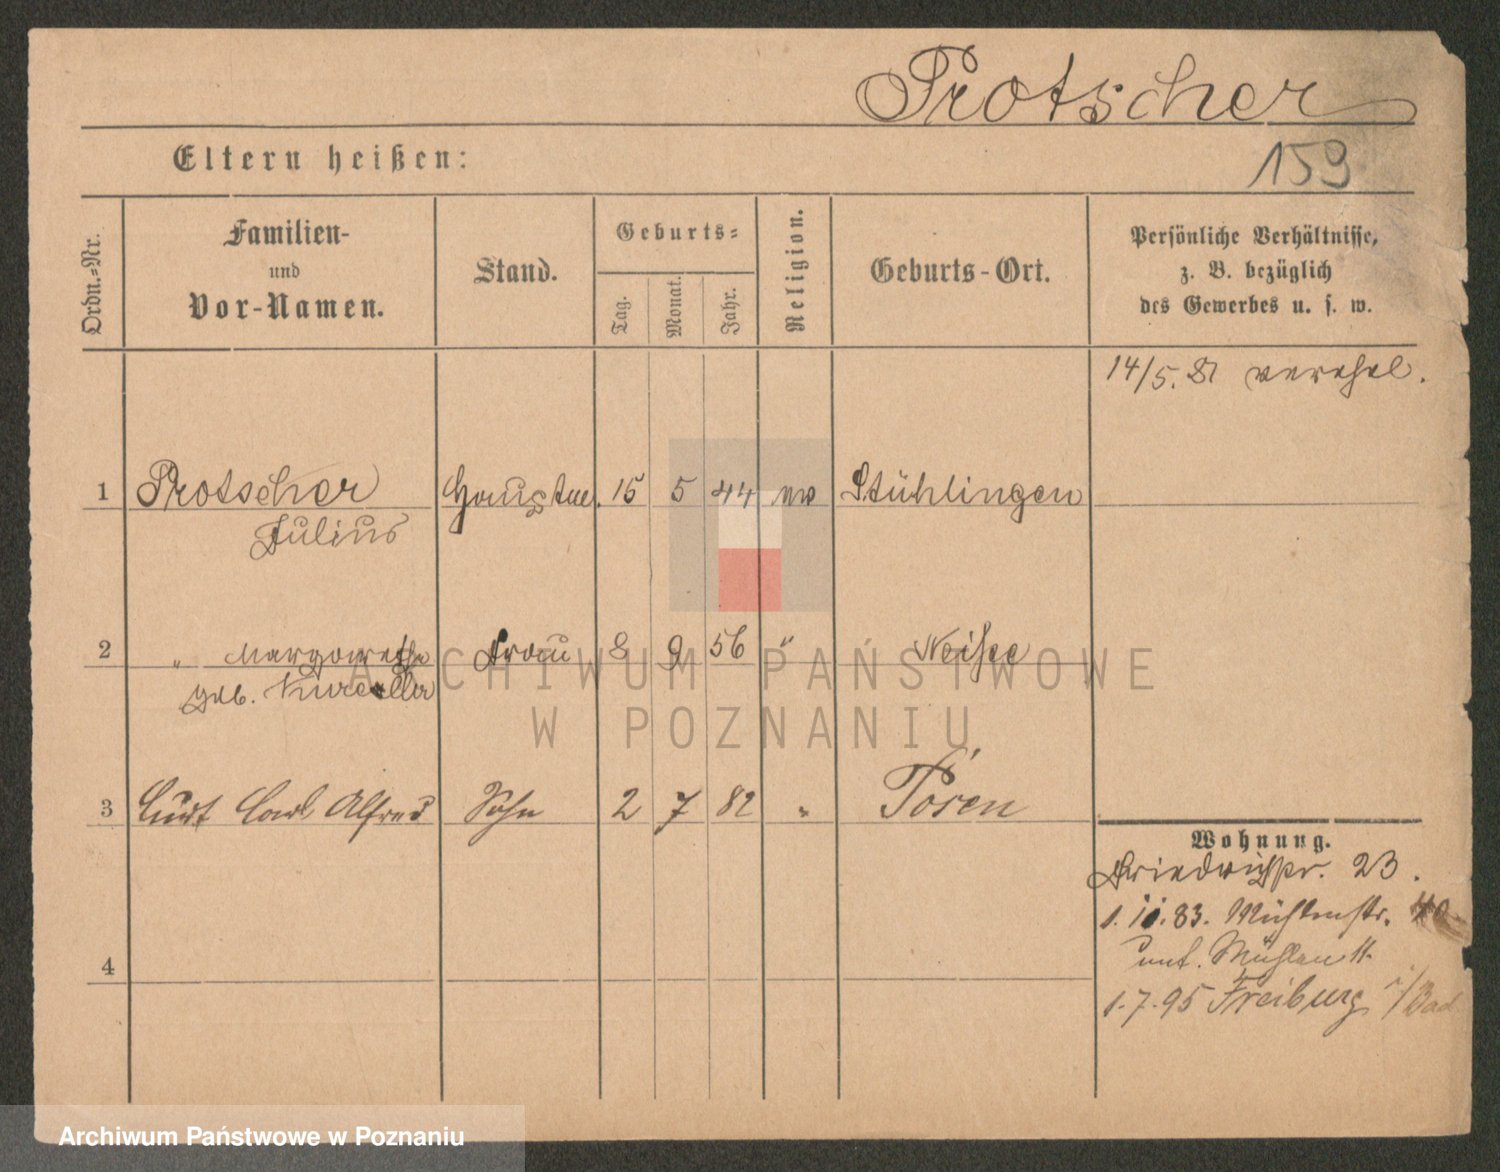 Protscher
Eltern heißen:
159
Ordn.-Nr.
Familien-
und
Vor-Namen.
Stand.
Geburts-
Tag.
Monat.
Jahr.
Religion.
Geburts-Ort.
Persönliche Verhältnisse,
z. B. bezüglich
des Gewerbes u. s. w.
14/5. 81 verehel.
1 Protscher Hauptm. 15 5 44 ev Stühlingen
Julius
2 " Margarethe Frau 8 9 56 " Neisse
geb.
3 Curt Carl Alfred Sohn 2 7 82 " Posen
Wohnung.
Friedrichstr. 23.
1. 11. 83. Mühlenstr.
unt. Mühlenstr.
1. 7. 95 Freiburg i/Bad
4
ARCHIWUM PAŃSTWOWE
W POZNANIU
Archiwum Państwowe w Poznaniu